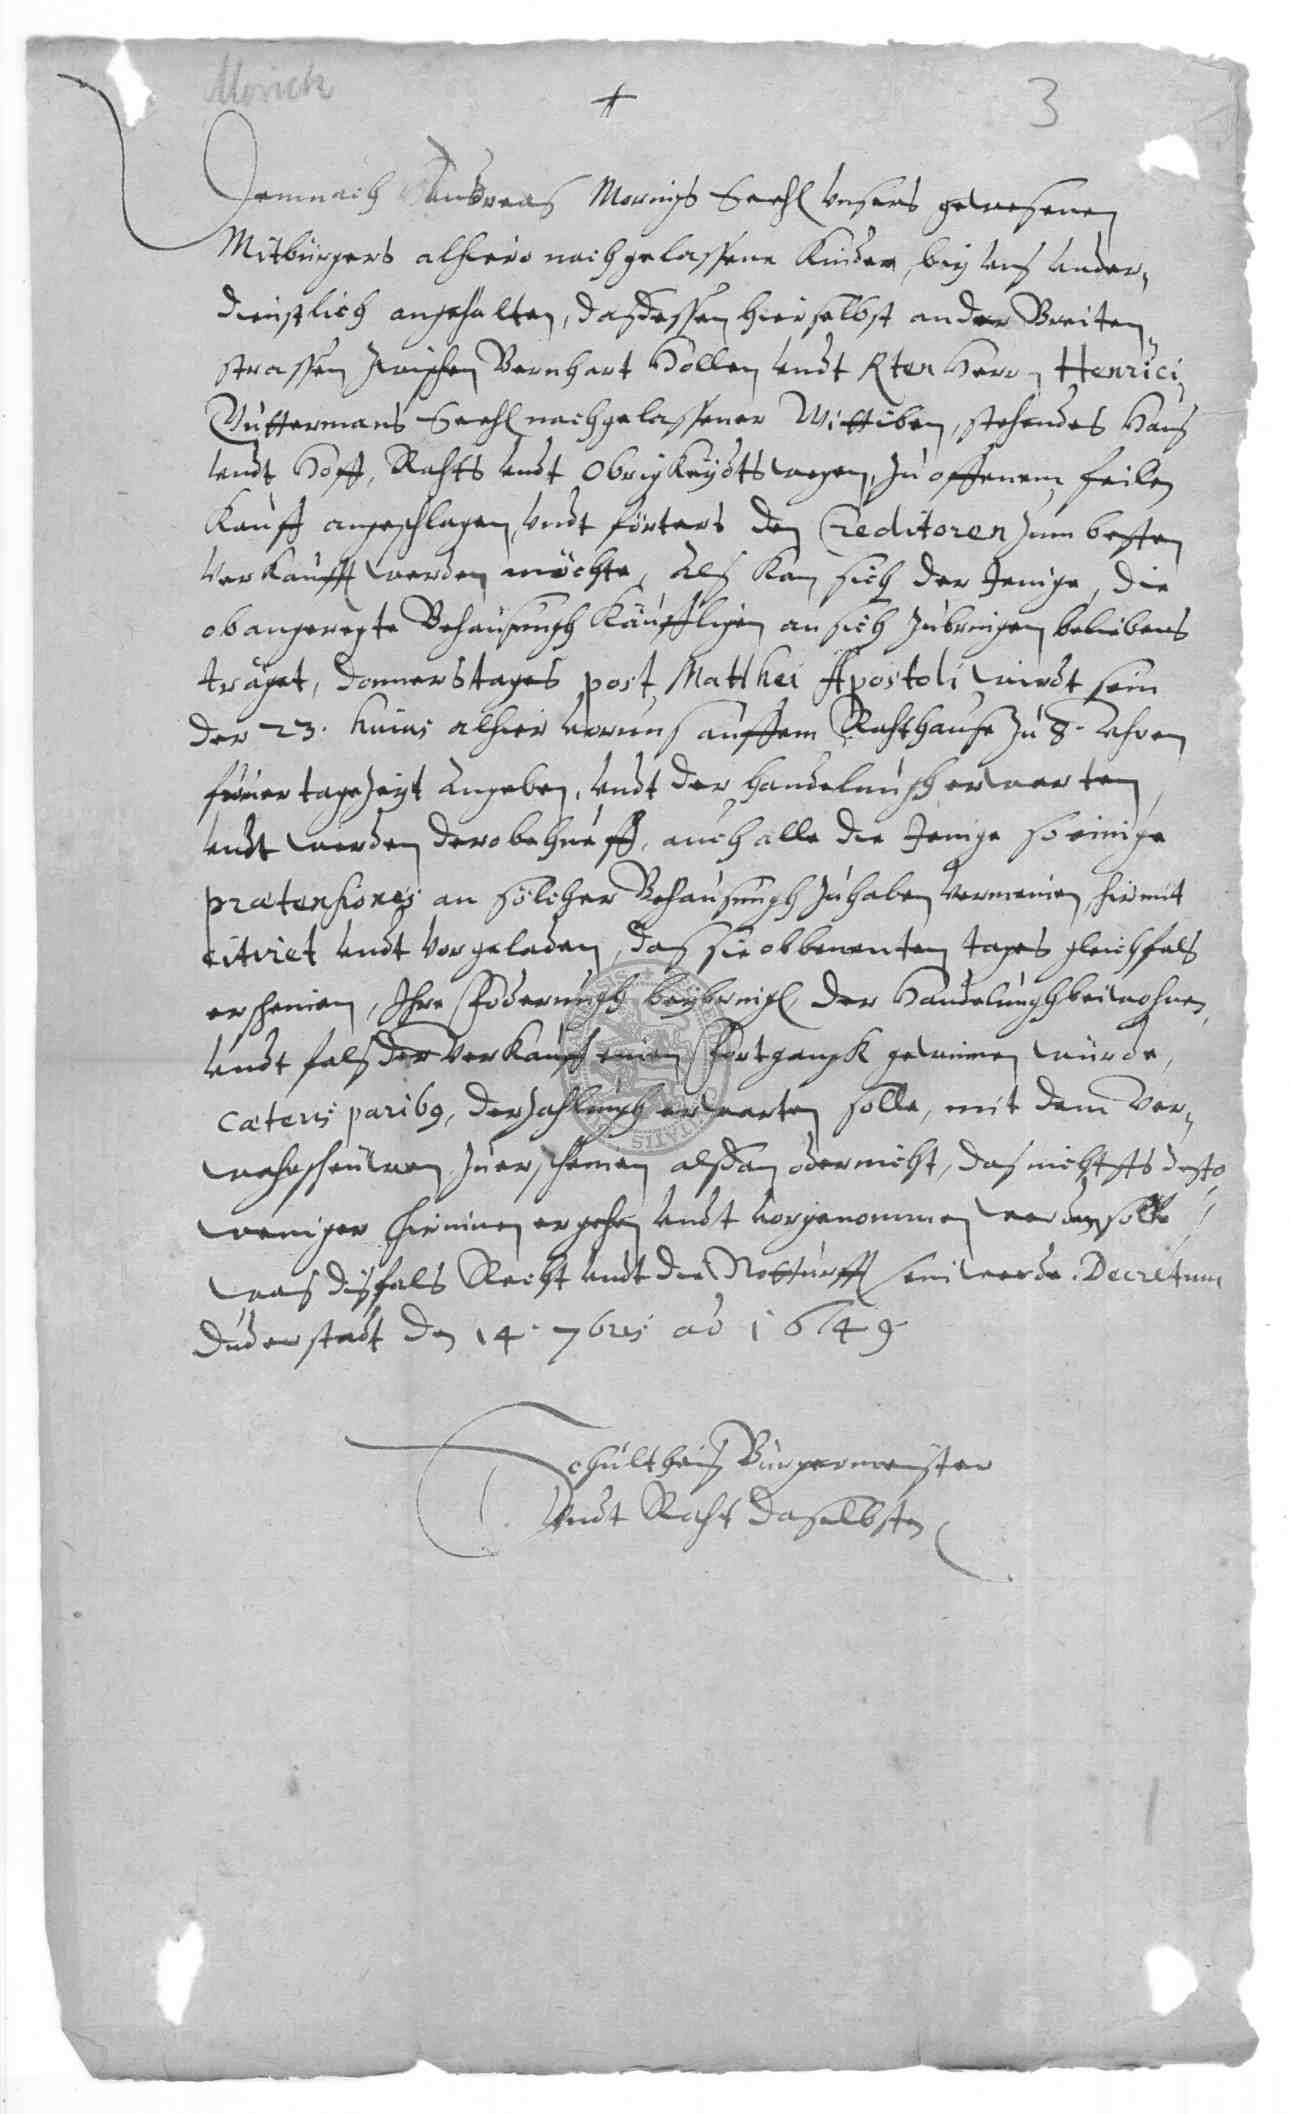 Morick
3
Demnach Andreas Mornigs Seehl Unsers gewesenen
Mitbürgers alhiero nachgelassene Kinder, bey uns under-
dienstlich angehalten, das dessen hierselbst an der Breiten
strassen zwischen Bernhart Höllen undt Herrn Henrici
Seehl nachgelassener Wittiben, stehendes Haus
undt Hoff, Rahts undt Obrigkeydts wegen, zu offenem feilen
Kauff angeschlagen, undt förters den Creditoren zum besten
verkaufft werden möchte, Als kan sich der Jenige, die
obangeregte Behausungh käuffligen an sich zubringen beliebens
träget, donnerstages post Matthei Apostoli wirdt sein
der 23. huius alhier vor uns auffem Rahthause zu 8. Uhren
tagezeyt angeben, undt der handelungh erwarten,
undt werden derobehueff, auch alle die Jenige so einige
prætensiones an solcher Behausungh zuhaben vermeinen, hirmit
citiret undt vorgeladen, das sie obbenenten tages gleichfals
erscheinen, Ihre Foderungh beybringen, der Handelungh beiwohnen,
undt fals der verkauff einen Fortgangk gewinnen würde,
cæteris parib9, der zahlungh erwarten solle, mit dem ver-
zuerscheinen alsdan oder nicht, das nichtsts desto
weniger hirinnen ergehen undt vorgenommen werden solle
was disfals Recht undt die Notturfft sein werde. Decretum
Duderstadt den 14. 7bris aõ 1649.
Schultheis Bürgermeister
Undt Raht daselbsten